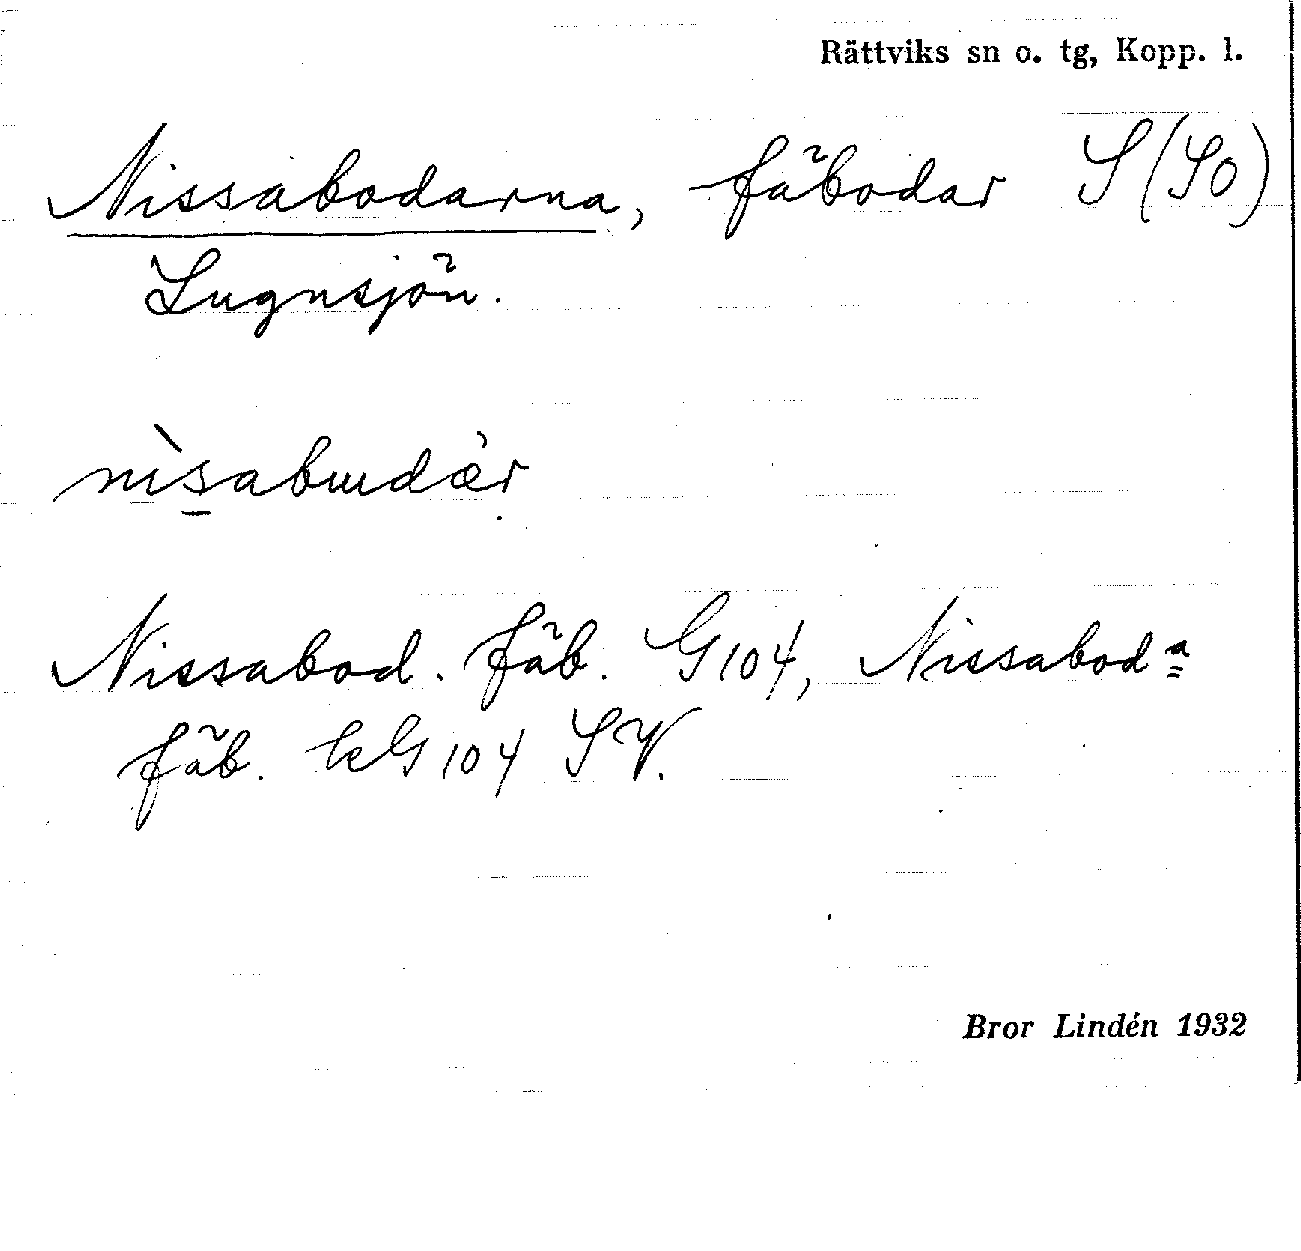 Rättviks sn o. tg, Kopp. l.
Nissabodarna, fäbodar S (SO)
Lugnsjön.
nìsabɯdæ̀r
Nissabod. fäb. G 104, Nissaboda
fäb. kG 104 SV.
Bror Lindén 1932